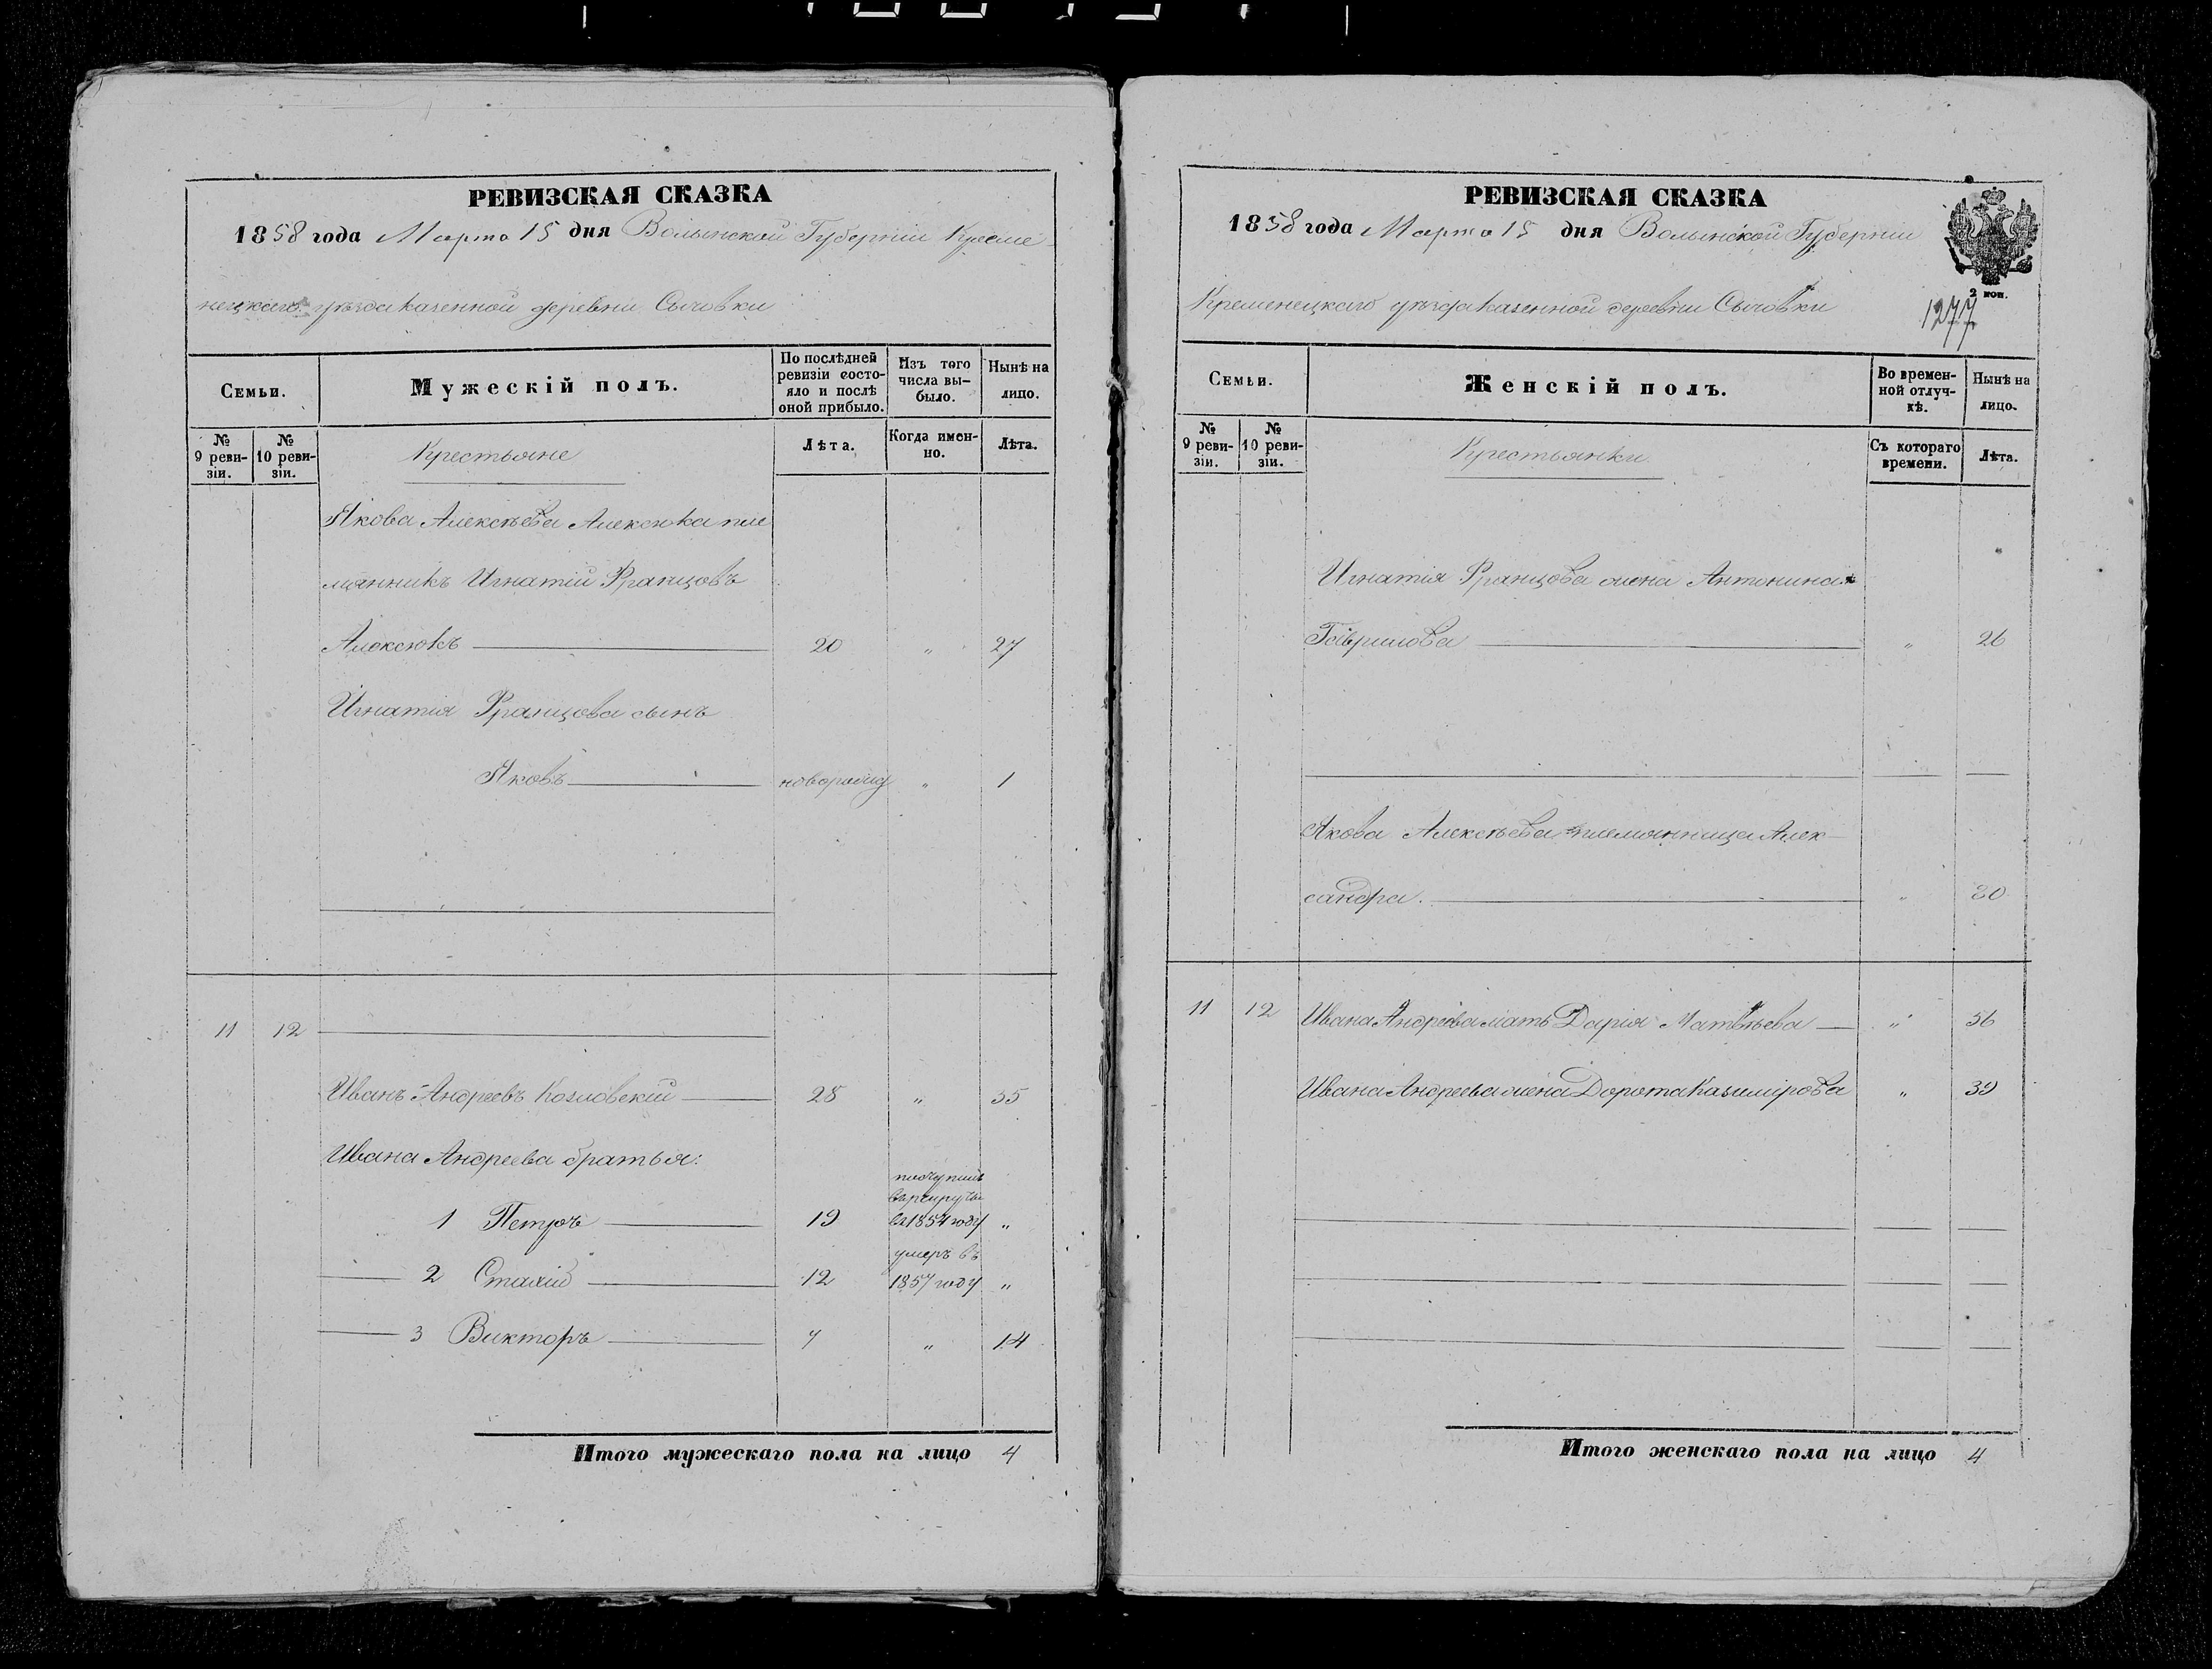 РЕВИЗСКАЯ СКАЗКА
1858 года Марта 15 дня Волынской Губерніи Креме-
нецкаго уѣзда казенной деревни Сычовки
Семьи.
Мужескій полъ.
По послѣдней ревизіи состо-яло и послѣ оной прибыло.
Изъ того числа вы-было.
Нынѣ на лицо.
№ 9 реви-зіи.
№ 10 реви-зіи.
Крестьяне
Лѣта.
Когда имен-но.
Лѣта.
Якова Алексѣева Алексюка пле
мянникъ Игнатій Францовъ
Алексюкъ 20 „ 27
Игнатія Францова сынъ
Яковъ новорожд „ 1
11 12
Иванъ Андреевъ Козловскій 28 „ 35
Ивана Андреева братья:
поступилъ
въ рекруты
1 Петръ 19 въ 1854 году „
умеръ въ
2 Стахій 12 1857 году „
3 Викторъ 7 „ 14
Итого мужескаго пола на лицо 4
РЕВИЗСКАЯ СКАЗКА
1858 года Марта 15 дня Волынской Губерніи
2 коп.
Кременецкаго уѣзда казенной деревни Сычовки
1277
Семьи.
Женскій полъ.
Во времен-ной отлуч-кѣ.
Нынѣ на лицо.
№ 9 реви-зіи.
№ 10 реви-зіи.
Крестьянки
Съ котораго времени.
Лѣта.
Игнатія Францова жена Антонина
Гаврилова „ 26
Якова Алексѣева племянница Алек-
сандра. „ 20
11 12 Ивана Андреева мать Дарія Матвѣева „ 56
Ивана Андреева жена Дорота Казимірова „ 39
Итого женскаго пола на лицо 4